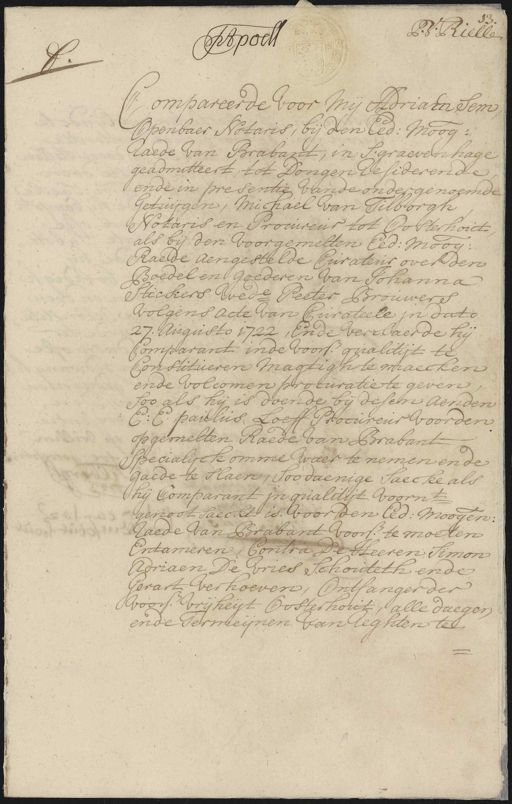 13.
P:V: Rielle
A.
Compareerde voor Mij Adriaen Sem
Openbaer Notaris, bij den Ed: Moog:
Raede van Brabant, in S'graevenhage
geadmitteert tot Dongen resideerende,
ende in presentie vande onder genoemde
getuijgen, Michael van Tilborgh
Notaris en Procureur tot Oosterhout,
als bij den voorgemelten Ed: Moog:
Raede aengestelde Curateur over den
Boedel en goederen van Johanna
Stickers Wed:e Peeter Brouwers
volgens acte van Curateele in dato
27. Augusto 1722, Ende verclaerde hij
Comparant inde voors: qualitijt te
Constitueren Magtigh te maecken
ende volcomen procuratie te geven,
soo als hij is doende bij desen aen den
E: E: paulus Loeff Procureur voor den
opgemelten Raede van Brabant
specialijck omme waer te nemen ende
gaede te slaen, soodaenige saecke als
hij Comparant in qualitijt voornt
genootsaeckt is voor den Ed: Moogen:
Raede van Brabant voors: te moeten
Entameren, Contra De Heeren Simon
Adriaen De Vries Schouteth ende
Gerart Verhoeven, Ontfanger der
voors: Vrijheijt Oosterhout, alle daegen,
ende Termeijnen van Reghten te